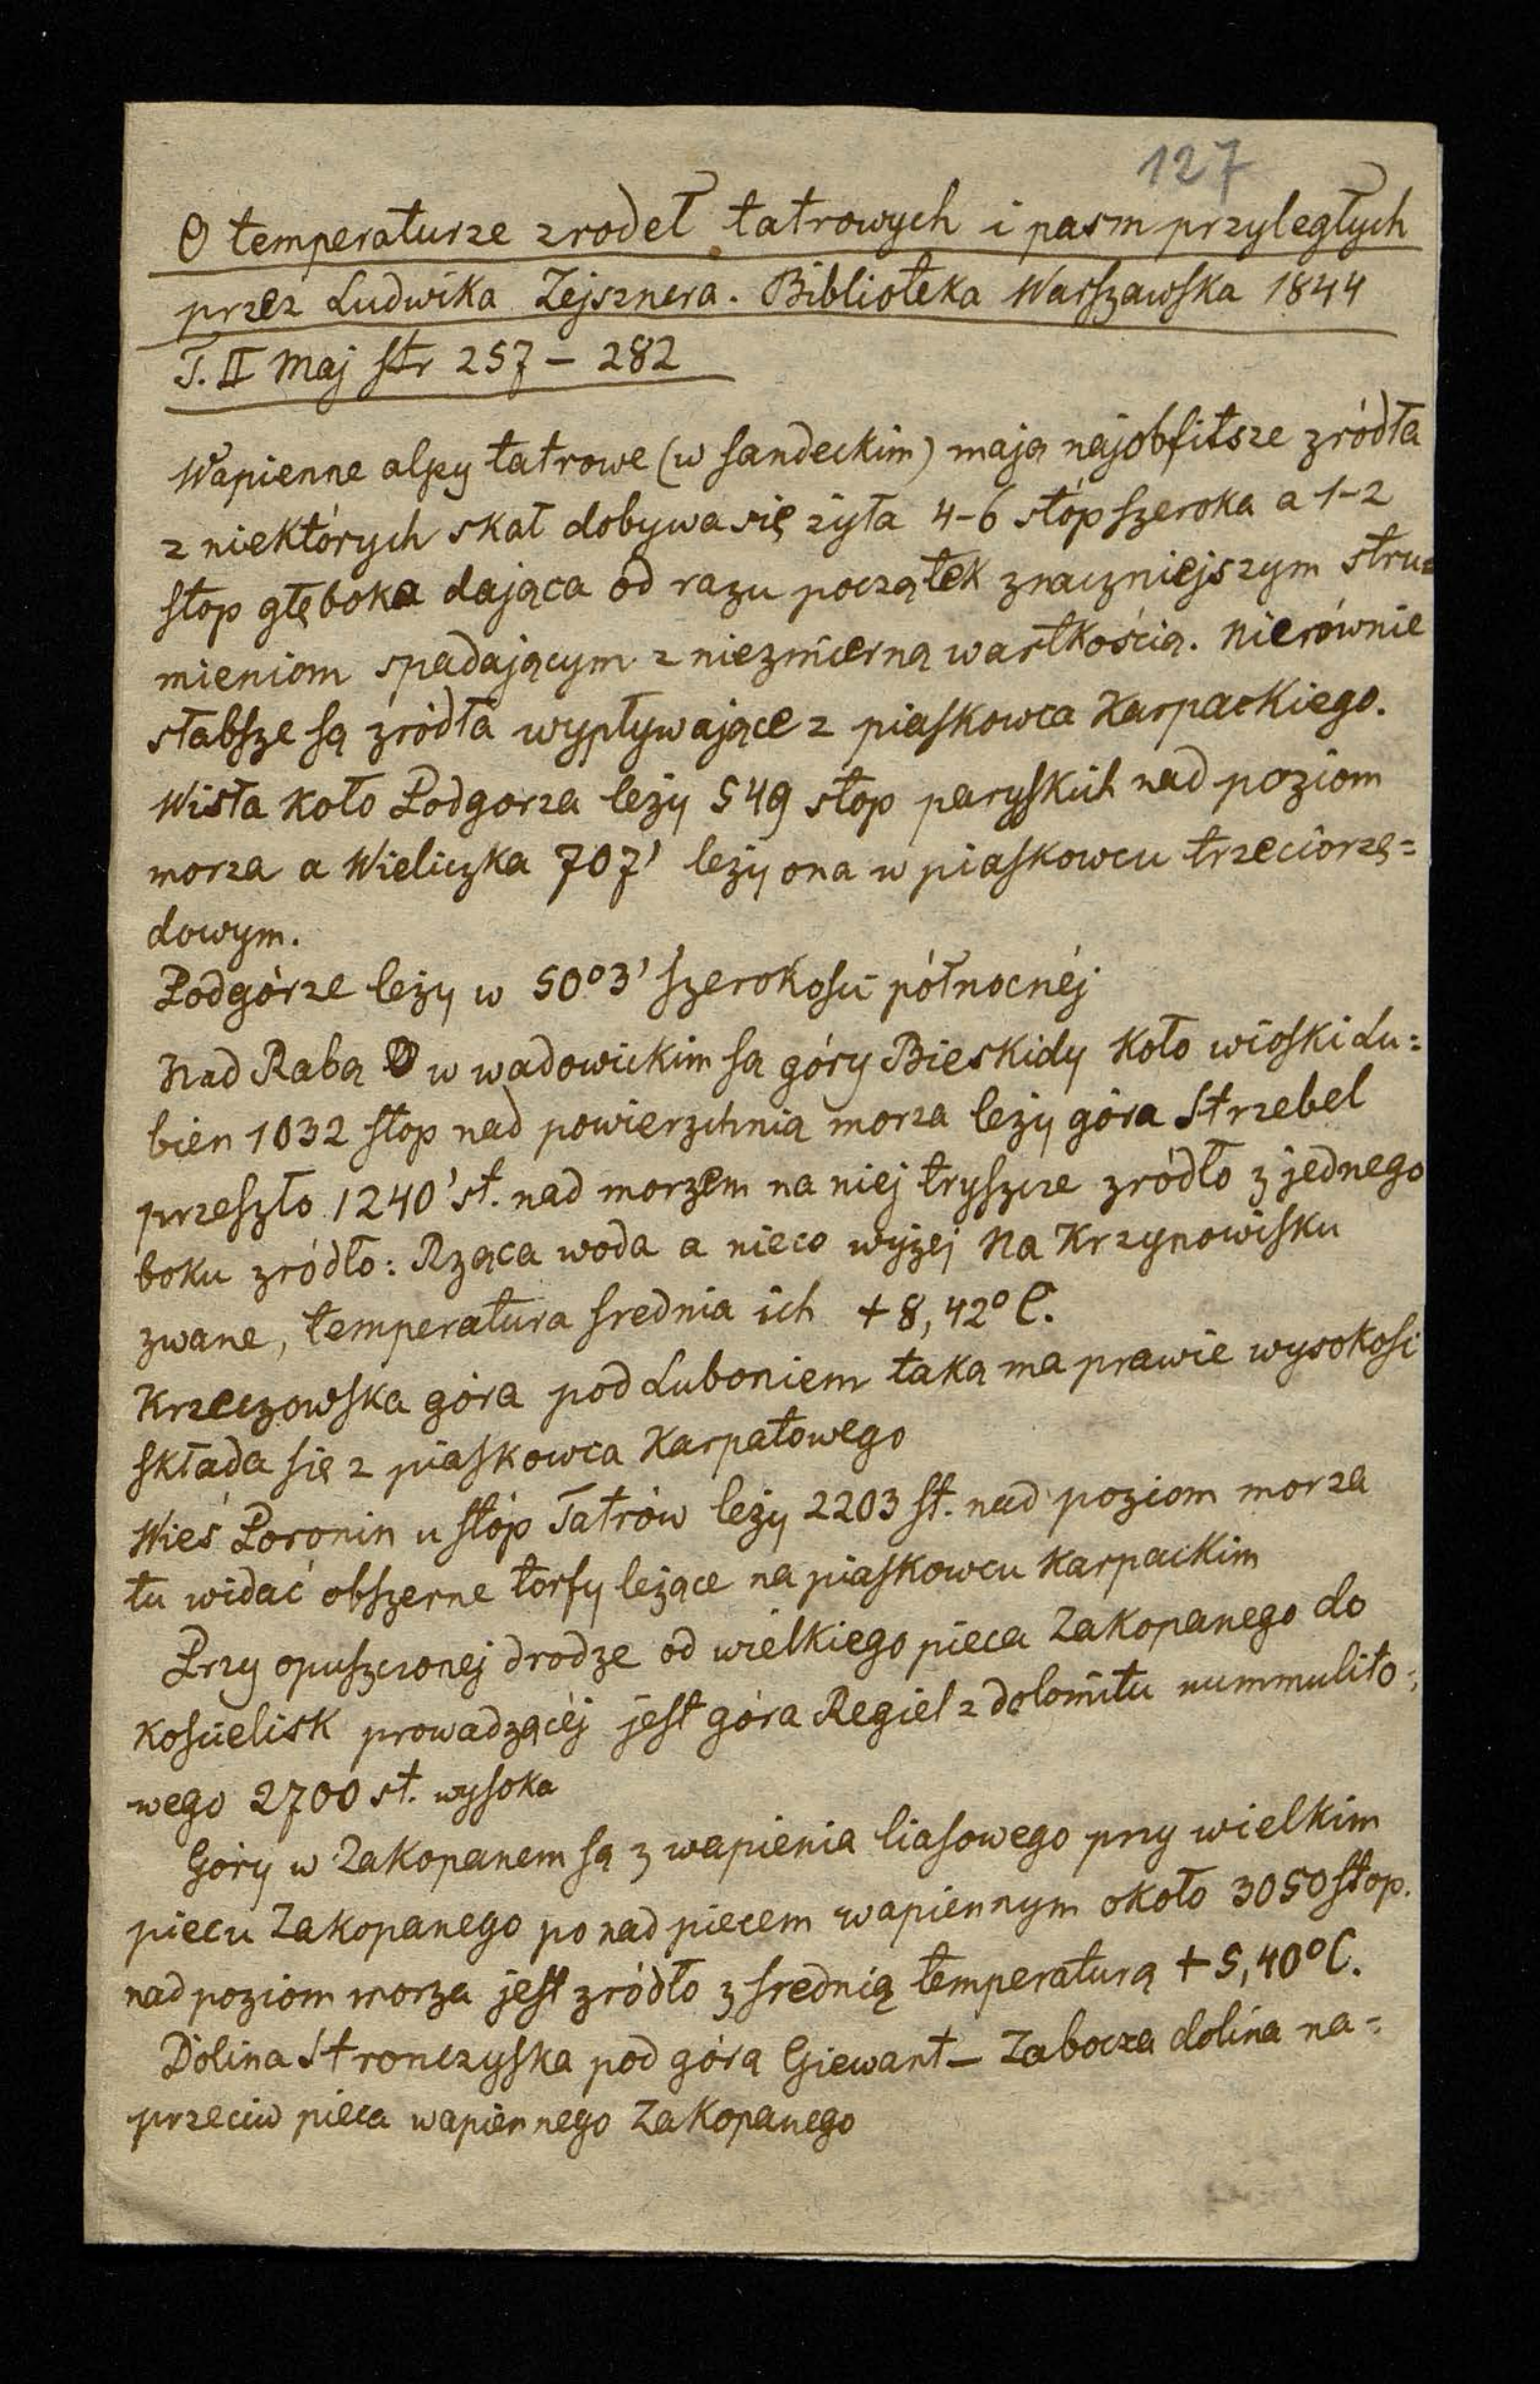 127
O temperaturze zrodeł tatrowych i pasm przyległych
przez Ludwika Zejsznera. Biblioteka Warszawska 1844
T. II Maj str 257 – 282
Wapienne alpy tatrowe (w sandeckim) mają najobfitsze zródła
z niektórych skał dobywa się żyła 4-6 stóp szeroka a 1-2
stop głęboka dająca od razu początek znaczniejszym stru=
mieniom spadającym z niezmierną wartkością. Nierównie
słabsze są źródła wypływające z piaskowca Karpackiego.
Wisła koło Podgorza leży 549 stop paryskich nad poziom
morza a Wieliczka 707' leży ona w piaskowcu trzeciorzę=
dowym.
Podgórze leży w 50°3' szerokości północnéj
Nad Rabą w wadowickim są góry Bieskidy koło wioski Lu=
bien 1032 stop nad powierzchnią morza leży góra Strzebel
przeszło 1240' st. nad morzem na niej tryszcze zródło z jednego
boku zródło: Rząca woda a nieco wyżej Na Krzynowisku
zwane, temperatura srednia ich + 8,42° C.
Krzeczowska góra pod Luboniem taką ma prawie wysokosć
składa się z piaskowca Karpatowego
Wieś Poronin u stóp Tatrów leży 2203 st. nad poziom morza
tu widać obszerne torfy leżące na piaskowcu Karpackim
Przy opuszczonej drodze od wielkiego pieca Zakopanego do
Kościelisk prowadzącéj jest góra Regiel z dolomitu nummulito=
wego 2700 st. wysoka
Góry w Zakopanem są z wapienia liasowego przy wielkim
piecu Zakopanego ponad piecem wapiennym około 3050 stop.
nad poziom morza jest zródło z srednią temperaturą + 5,40° C.
Dolina Stronczyska pod górą Giewant – Zabocza dolina na=
przeciw pieca wapiennego Zakopanego